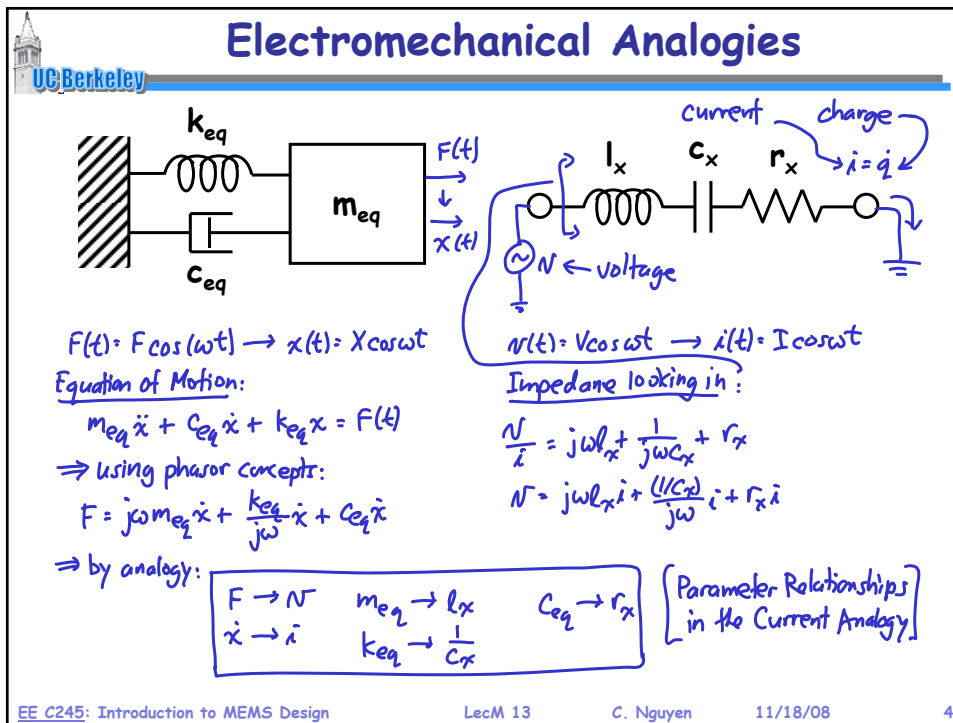 Electromechanical Analogies
UC Berkeley
k_eq
F(t)
m_eq
x(t)
c_eq
current
charge
l_x
c_x
r_x
i = q̇
~
v ← voltage
F(t) = F cos(ωt) → x(t) = X cosωt
Equation of Motion:
m_eq ẍ + c_eq ẋ + k_eq x = F(t)
⇒ using phasor concepts:
F = jω m_eq ẋ + k_eq/jω ẋ + c_eq ẋ
⇒ by analogy:
v(t) = V cosωt → i(t) = I cosωt
Impedance looking in:
v/i = jωl_x + 1/jωc_x + r_x
v = jωl_x i + (1/c_x)/jω i + r_x i
F → v m_eq → l_x c_eq → r_x
ẋ → i k_eq → 1/c_x
[Parameter Relationships
in the Current Analogy]
EE C245: Introduction to MEMS Design LecM 13 C. Nguyen 11/18/08 4